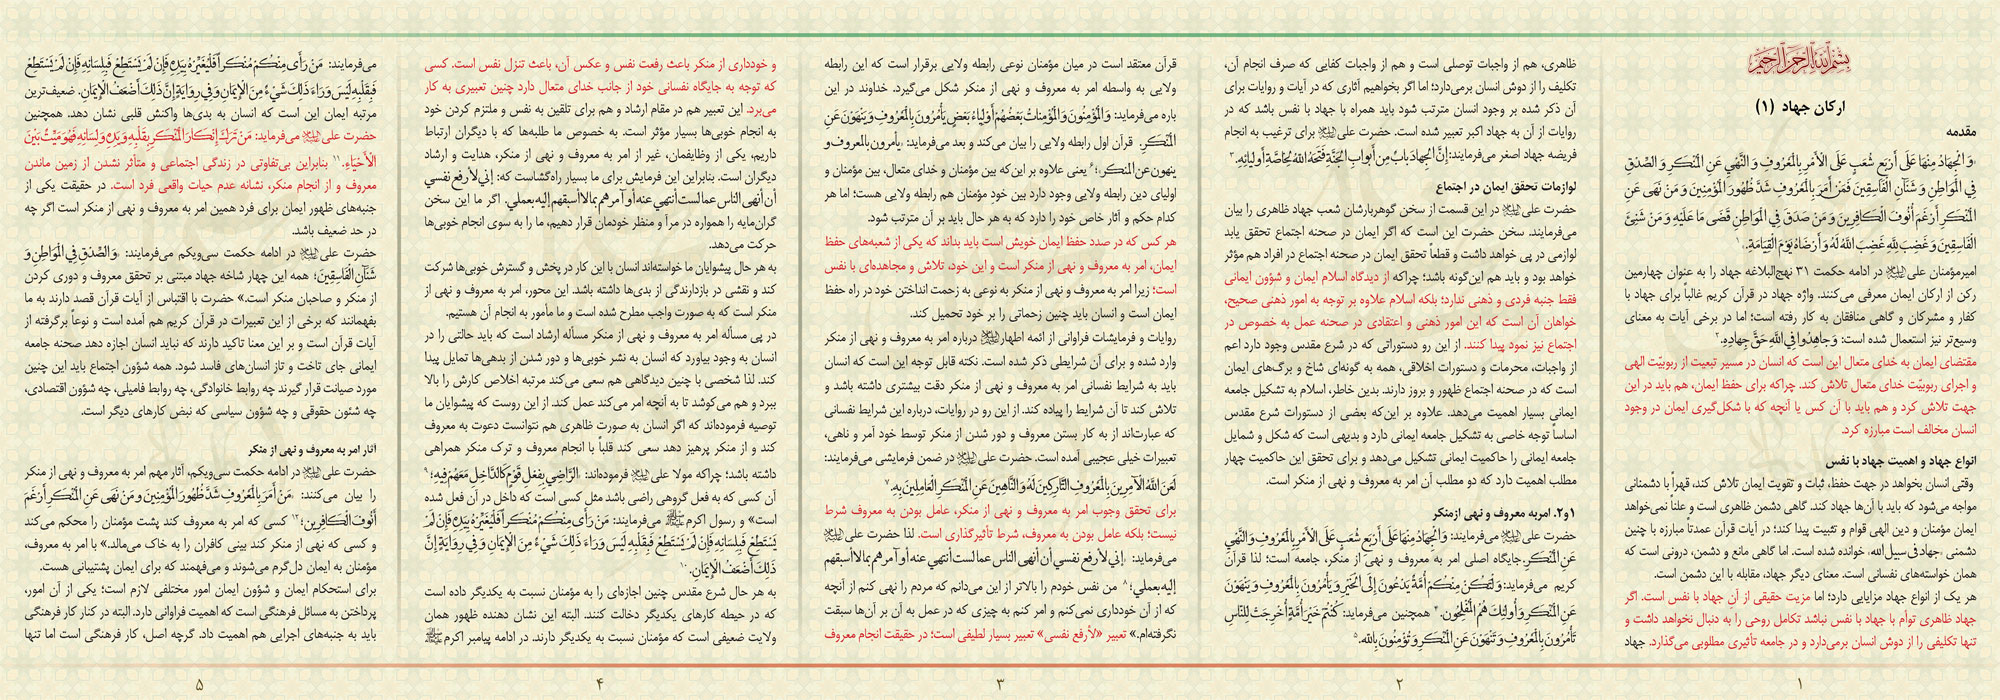 بسم الله الرحمن الرحیم
ارکان جهاد (۱)
مقدمه
«وَ الْجِهَادُ مِنْهَا عَلَى أَرْبَعِ شُعَبٍ عَلَى الْأَمْرِ بِالْمَعْرُوفِ وَ النَّهْيِ عَنِ الْمُنْكَرِ وَ الصِّدْقِ
فِي الْمَوَاطِنِ وَ شَنَآنِ الْفَاسِقِينَ فَمَنْ أَمَرَ بِالْمَعْرُوفِ شَدَّ ظُهُورَ الْمُؤْمِنِينَ وَ مَنْ نَهَى عَنِ
الْمُنْكَرِ أَرْغَمَ أُنُوفَ الْكَافِرِينَ وَ مَنْ صَدَقَ فِي الْمَوَاطِنِ قَضَى مَا عَلَيْهِ وَ مَنْ شَنِئَ
الْفَاسِقِينَ وَ غَضِبَ لِلَّهِ غَضِبَ اللَّهُ لَهُ وَ أَرْضَاهُ يَوْمَ الْقِيَامَةِ.»۱
امیرمؤمنان علی در ادامه حکمت ۳۱ نهج‌البلاغه جهاد را به عنوان چهارمین
رکن از ارکان ایمان معرفی می‌کنند. واژه جهاد در قرآن کریم غالباً برای جهاد با
کفار و مشرکان و گاهی منافقان به کار رفته است؛ اما در برخی آیات به معنای
وسیع‌تر نیز استعمال شده است: وَ جَاهِدُوا فِي اللَّهِ حَقَّ جِهَادِهِ.۲
مقتضای ایمان به خدای متعال این است که انسان در مسیر تبعیت از ربوبیّت الهی
و اجرای ربوبیّت خدای متعال تلاش کند. چراکه برای حفظ ایمان، هم باید در این
جهت تلاش کرد و هم باید با آن کس یا آنچه که با شکل‌گیری ایمان در وجود
انسان مخالف است مبارزه کرد.
انواع جهاد و اهمیت جهاد با نفس
وقتی انسان بخواهد در جهت حفظ، ثبات و تقویت ایمان تلاش کند، قهراً با دشمنانی
مواجه می‌شود که باید با آن‌ها جهاد کند. گاهی دشمن ظاهری است و علناً نمی‌خواهد
ایمان مؤمنان و دین الهی قوام و تثبیت پیدا کند؛ در آیات قرآن عمدتاً مبارزه با چنین
دشمنی «جهاد فی سبیل الله» خوانده شده است. اما گاهی مانع و دشمن، درونی است که
همان خواسته‌های نفسانی است. معنای دیگر جهاد، مقابله با این دشمن است.
هر یک از انواع جهاد مزایایی دارد؛ اما مزیت حقیقی از آنِ جهاد با نفس است. اگر
جهاد ظاهری توأم با جهاد با نفس نباشد تکامل روحی را به دنبال نخواهد داشت و
تنها تکلیفی را از دوش انسان برمی‌دارد و در جامعه تأثیری مطلوبی می‌گذارد. جهاد
۱
ظاهری، هم از واجبات توصلی است و هم از واجبات کفایی که صرف انجام آن،
تکلیف را از دوش انسان برمی‌دارد؛ اما اگر بخواهیم آثاری که در آیات و روایات برای
آن ذکر شده بر وجود انسان مترتب شود باید همراه با جهاد با نفس باشد که در
روایات از آن به جهاد اکبر تعبیر شده است. حضرت علی برای ترغیب به انجام
فریضه جهاد اصغر می‌فرمایند: إِنَّ الْجِهَادَ بَابٌ مِنْ أَبْوَابِ الْجَنَّةِ فَتَحَهُ اللَّهُ لِخَاصَّةِ أَوْلِيَائِهِ.۳
لوازمات تحقق ایمان در اجتماع
حضرت علی در این قسمت از سخن گوهربارشان شعب جهاد ظاهری را بیان
می‌فرمایند. سخن حضرت این است که اگر ایمان در صحنه اجتماع تحقق یابد
لوازمی در پی خواهد داشت و قطعاً تحقق ایمان در صحنه اجتماع در افراد هم مؤثر
خواهد بود و باید هم این‌گونه باشد؛ چراکه از دیدگاه اسلام ایمان و شؤون ایمانی
فقط جنبه فردی و ذهنی ندارد؛ بلکه اسلام علاوه بر توجه به امور ذهنی صحیح،
خواهان آن است که این امور ذهنی و اعتقادی در صحنه عمل به خصوص در
اجتماع نیز نمود پیدا کنند. از این رو دستوراتی که در شرع مقدس وجود دارد اعم
از واجبات، محرمات و دستورات اخلاقی، همه به گونه‌ای شاخ و برگ‌های ایمان
است که در صحنه اجتماع ظهور و بروز دارند. بدین خاطر، اسلام به تشکیل جامعه
ایمانی بسیار اهمیت می‌دهد. علاوه بر این‌که بعضی از دستورات شرع مقدس
اساساً توجه خاصی به تشکیل جامعه ایمانی دارد و بدیهی است که شکل و شمایل
جامعه ایمانی را حاکمیت ایمانی تشکیل می‌دهد و برای تحقق این حاکمیت چهار
مطلب اهمیت دارد که دو مطلب آن امر به معروف و نهی از منکر است.
۱و۲. امربه معروف و نهی ازمنکر
حضرت علی می‌فرمایند: وَ الْجِهَادُ مِنْهَا عَلَى أَرْبَعِ شُعَبٍ عَلَى الْأَمْرِ بِالْمَعْرُوفِ وَ النَّهْيِ
عَنِ الْمُنْكَرِ. جایگاه اصلی امر به معروف و نهی از منکر، جامعه است؛ لذا قرآن
کریم می‌فرماید: وَلْتَكُنْ مِنْكُمْ أُمَّةٌ يَدْعُونَ إِلَى الْخَيْرِ وَيَأْمُرُونَ بِالْمَعْرُوفِ وَيَنْهَوْنَ
عَنِ الْمُنْكَرِ وَأُولئِكَ هُمُ الْمُفْلِحُونَ.۴ همچنین می‌فرماید: كُنْتُمْ خَيْرَ أُمَّةٍ أُخْرِجَتْ لِلنَّاسِ
تَأْمُرُونَ بِالْمَعْرُوفِ وَ تَنْهَوْنَ عَنِ الْمُنْكَرِ وَ تُؤْمِنُونَ بِاللهِ.۵
۲
قرآن معتقد است در میان مؤمنان نوعی رابطه ولایی برقرار است که این رابطه
ولایی به واسطه امر به معروف و نهی از منکر شکل می‌گیرد. خداوند در این
باره می‌فرماید: وَالْمُؤْمِنُونَ وَالْمُؤْمِنَاتُ بَعْضُهُمْ أَوْلِيَاءُ بَعْضٍ يَأْمُرُونَ بِالْمَعْرُوفِ وَيَنْهَوْنَ عَنِ
الْمُنْكَرِ. قرآن اول رابطه ولایی را بیان می‌کند و بعد می‌فرماید: «يأمرون بالمعروف و
ينهون عن المنكر»؛۶ یعنی علاوه بر این‌که بین مؤمنان و خدای متعال، بین مؤمنان و
اولیای دین رابطه ولایی وجود دارد بین خود مؤمنان هم رابطه ولایی هست؛ اما هر
کدام حکم و آثار خاص خود را دارد که به هر حال باید بر آن مترتب شود.
هر کس که در صدد حفظ ایمان خویش است باید بداند که یکی از شعبه‌های حفظ
ایمان، امر به معروف و نهی از منکر است و این خود، تلاش و مجاهده‌ای با نفس
است؛ زیرا امر به معروف و نهی از منکر به نوعی به زحمت انداختن خود در راه حفظ
ایمان است و انسان باید چنین زحماتی را بر خود تحمیل کند.
روایات و فرمایشات فراوانی از ائمه اطهار درباره امر به معروف و نهی از منکر
وارد شده و برای آن شرایطی ذکر شده است. نکته قابل توجه این است که انسان
باید به شرایط نفسانی امر به معروف و نهی از منکر دقت بیشتری داشته باشد و
تلاش کند تا آن شرایط را پیاده کند. از این رو در روایات، درباره این شرایط نفسانی
که عبارت‌اند از به کار بستن معروف و دور شدن از منکر توسط خود آمر و ناهی،
تعبیرات خیلی عجیبی آمده است. حضرت علی در ضمن فرمایشی می‌فرمایند:
لَعَنَ اللَّهُ الْآمِرِينَ بِالْمَعْرُوفِ التَّارِكِينَ لَهُ وَ النَّاهِينَ عَنِ الْمُنْكَرِ الْعَامِلِينَ بِهِ.۷
برای تحقق وجوب امر به معروف و نهی از منکر، عامل بودن به معروف شرط
نیست؛ بلکه عامل بودن به معروف، شرط تأثیرگذاری است. لذا حضرت علی
می‌فرماید: «إني لأرفع نفسي أن أنهى الناس عما لست أنتهي عنه أو آمرهم بما لا أسبقهم
إليه بعملي»؛۸ من نفس خودم را بالاتر از این می‌دانم که مردم را نهی کنم از آنچه
که از آن خودداری نمی‌کنم و امر کنم به چیزی که در عمل به آن بر آن‌ها سبقت
نگرفته‌ام.» تعبیر «لأرفع نفسی» تعبیر بسیار لطیفی است؛ در حقیقت انجام معروف
۳
و خودداری از منکر باعث رفعت نفس و عکس آن، باعث تنزل نفس است. کسی
که توجه به جایگاه نفسانی خود از جانب خدای متعال دارد چنین تعبیری به کار
می‌برد. این تعبیر هم در مقام ارشاد و هم برای تلقین به نفس و ملتزم کردن خود
به انجام خوبی‌ها بسیار مؤثر است. به خصوص ما طلبه‌ها که با دیگران ارتباط
داریم، یکی از وظایفمان، غیر از امر به معروف و نهی از منکر، هدایت و ارشاد
دیگران است. بنابراین این فرمایش برای ما بسیار راه‌گشاست که: إني لأرفع نفسي
أن أنهى الناس عما لست أنتهي عنه أو آمرهم بما لا أسبقهم إليه بعملي. اگر ما این سخن
گران‌مایه را همواره در مرآ و منظر خودمان قرار دهیم، ما را به سوی انجام خوبی‌ها
حرکت می‌دهد.
به هر حال پیشوایان ما خواسته‌اند انسان با این کار در پخش و گسترش خوبی‌ها شرکت
کند و نقشی در بازدارندگی از بدی‌ها داشته باشد. این محور، امر به معروف و نهی از
منکر است که به صورت واجب مطرح شده است و ما مأمور به انجام آن هستیم.
در پی مسأله امر به معروف و نهی از منکر مسأله ارشاد است که باید حالتی را در
انسان به وجود بیاورد که انسان به نشر خوبی‌ها و دور شدن از بدهی‌ها تمایل پیدا
کند. لذا شخصی با چنین دیدگاهی هم سعی می‌کند مرتبه اخلاص کارش را بالا
ببرد و هم می‌کوشد تا به آنچه امر می‌کند عمل کند. از این روست که پیشوایان ما
توصیه فرموده‌اند که اگر انسان به صورت ظاهری هم نتوانست دعوت به معروف
کند و از منکر پرهیز دهد سعی کند قلباً با انجام معروف و ترک منکر همراهی
داشته باشد؛ چراکه مولا علی فرموده‌اند: الرَّاضِي بِفِعْلِ قَوْمٍ كَالدَّاخِلِ مَعَهُمْ فِيهِ؛۹
آن کسی که به فعل گروهی راضی باشد مثل کسی است که داخل در آن فعل شده
است» و رسول اکرم می‌فرمایند: مَنْ رَأَى مِنْكُمْ مُنْكَراً فَلْيُغَيِّرْهُ بِيَدِهِ فَإِنْ لَمْ
يَسْتَطِعْ فَبِلِسَانِهِ فَإِنْ لَمْ يَسْتَطِعْ فَبِقَلْبِهِ لَيْسَ وَرَاءَ ذَلِكَ شَيْءٌ مِنَ الْإِيمَانِ وَ فِي رِوَايَةٍ إِنَّ
ذَلِكَ أَضْعَفُ الْإِيمَانِ.۱۰
به هر حال شرع مقدس چنین اجازه‌ای را به مؤمنان نسبت به یکدیگر داده است
که در حیطه کارهای یکدیگر دخالت کنند. البته این نشان دهنده ظهور همان
ولایت ضعیفی است که مؤمنان نسبت به یکدیگر دارند. در ادامه پیامبر اکرم
۴
می‌فرمایند: مَنْ رَأَى مِنْكُمْ مُنْكَراً فَلْيُغَيِّرْهُ بِيَدِهِ فَإِنْ لَمْ يَسْتَطِعْ فَبِلِسَانِهِ فَإِنْ لَمْ يَسْتَطِعْ
فَبِقَلْبِهِ لَيْسَ وَرَاءَ ذَلِكَ شَيْءٌ مِنَ الْإِيمَانِ وَ فِي رِوَايَةٍ إِنَّ ذَلِكَ أَضْعَفُ الْإِيمَانِ. ضعیف‌ترین
مرتبه ایمان این است که انسان به بدی‌ها واکنش قلبی نشان دهد. همچنین
حضرت علی می‌فرماید: مَنْ تَرَكَ إِنْكَارَ الْمُنْكَرِ بِقَلْبِهِ وَ يَدِهِ وَ لِسَانِهِ فَهُوَ مَيِّتٌ بَيْنَ
الْأَحْيَاءِ.۱۱ بنابراین بی‌تفاوتی در زندگی اجتماعی و متأثر نشدن از زمین ماندن
معروف و از انجام منکر، نشانه عدم حیات واقعی فرد است. در حقیقت یکی از
جنبه‌های ظهور ایمان برای فرد همین امر به معروف و نهی از منکر است اگر چه
در حد ضعیف باشد.
حضرت علی در ادامه حکمت سی‌ویکم می‌فرمایند: «وَالصِّدْقِ فِي الْمَوَاطِنِ وَ
شَنَآنِ الْفَاسِقِينَ؛ همه این چهار شاخه جهاد مبتنی بر تحقق معروف و دوری کردن
از منکر و صاحبان منکر است.» حضرت با اقتباس از آیات قرآن قصد دارند به ما
بفهمانند که برخی از این تعبیرات در قرآن کریم هم آمده است و نوعاً برگرفته از
آیات قرآن است و بر این معنا تاکید دارند که نباید انسان اجازه دهد صحنه جامعه
ایمانی جای تاخت و تاز انسان‌های فاسد شود. همه شؤون اجتماع باید این چنین
مورد صیانت قرار گیرند چه روابط خانوادگی، چه روابط فامیلی، چه شؤون اقتصادی،
چه شئون حقوقی و چه شؤون سیاسی که نبض کارهای دیگر است.
آثار امر به معروف و نهی از منکر
حضرت علی در ادامه حکمت سی‌ویکم، آثار مهم امر به معروف و نهی از منکر
را بیان می‌کنند: «مَنْ أَمَرَ بِالْمَعْرُوفِ شَدَّ ظُهُورَ الْمُؤْمِنِينَ وَ مَنْ نَهَى عَنِ الْمُنْكَرِ أَرْغَمَ
أُنُوفَ الْكَافِرِينَ؛۱۲ کسی که امر به معروف کند پشت مؤمنان را محکم می‌کند
و کسی که نهی از منکر کند بینی کافران را به خاک می‌مالد.» با امر به معروف،
مؤمنان به ایمان دل‌گرم می‌شوند و می‌فهمند که برای ایمان پشتیبانی هست.
برای استحکام ایمان و شؤون ایمان امور مختلفی لازم است؛ یکی از آن امور،
پرداختن به مسائل فرهنگی است که اهمیت فراوانی دارد. البته در کنار کار فرهنگی
باید به جنبه‌های اجرایی هم اهمیت داد. گرچه اصل، کار فرهنگی است اما تنها
۵